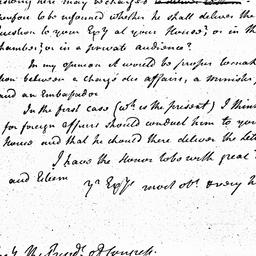 nowing here may be charged
therefore to be informed whether he shall deliver the
question to your Exy at your House; or in th
chamber; or in a private audience?
In my opinion it would be proper to mak
tion between a chargé des affaires, a minister,
and an Embassador
In the first case (wch. is the present) I thin
for foreign affairs should conduct him to you
House and that he should there deliver the lett
I have the Honor to be with great
and Esteem
yr. Exys. most obt. & very h
The Presidt. of Congress.